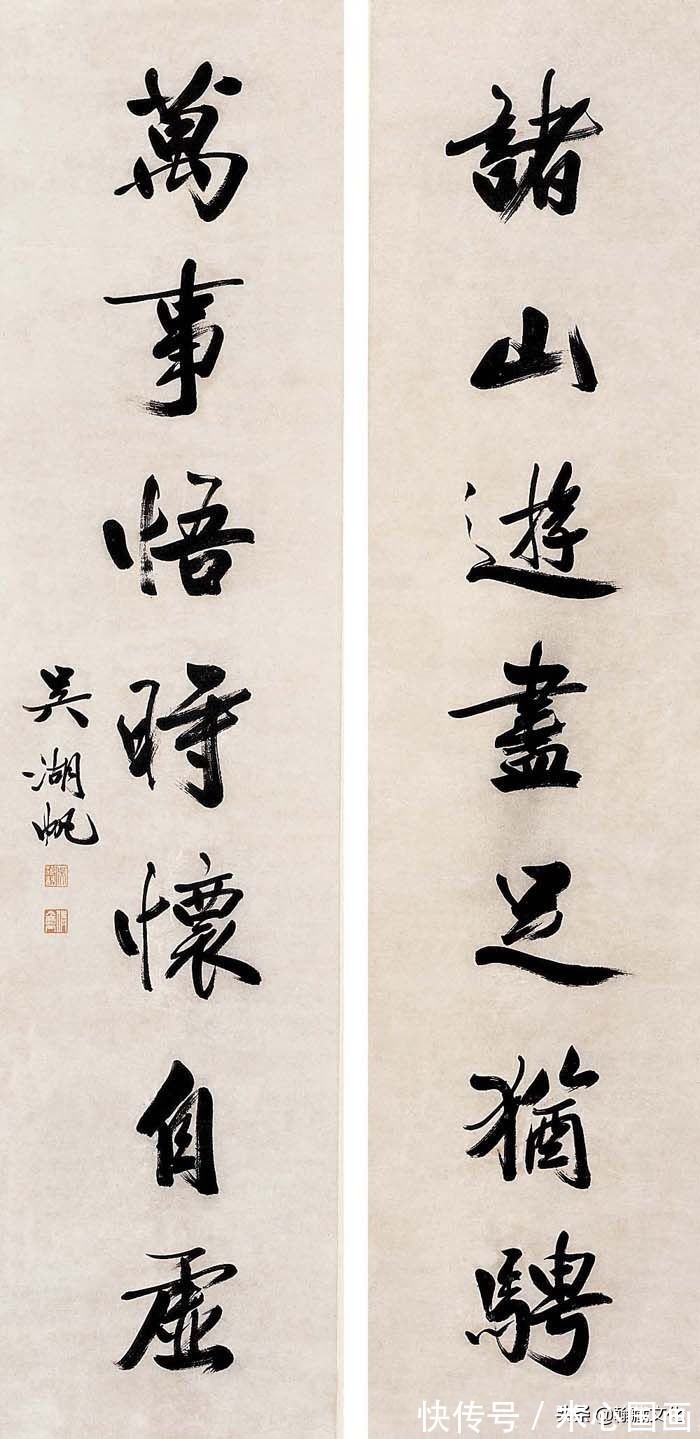 諸山遊盡足猶騁
萬事悟時懷自虛
吳湖帆
快传号／米心国画